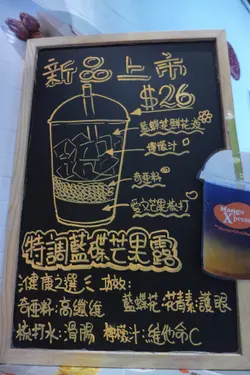 新品上市
$26
藍蝶花
檸檬汁
奇亞籽
愛文芒果椰打
特調藍蝶芒果露
健康之選 功效:
奇亞籽:高纖維
藍蝶花:花青素:護眼
椰打水:滑腸
檸檬汁:維他命C
Mango
Xpress